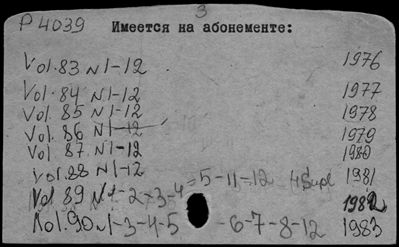 3
P 4039 Имеется на абонементе:
Vol. 83 N 1-12 1976
Vol. 84 N 1-12 1977
Vol. 85 N 1-12 1978
Vol. 86 N 1-12 1979
Vol. 87 N 1-12 1980
Vol. 88 N 1-12 1981
Vol 89 N 1-2-3-4-5-11-12 Supl 1982
Vol. 90 N 1-3-4-5 -6-7-8-12 1983